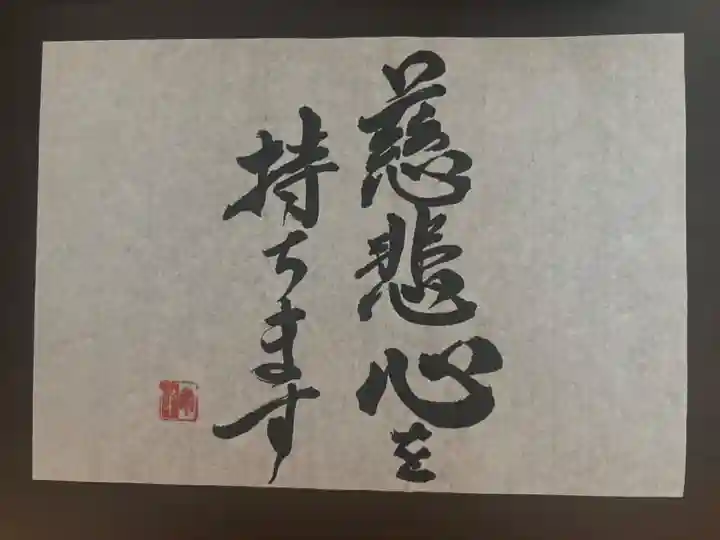 慈悲心を
持ちます